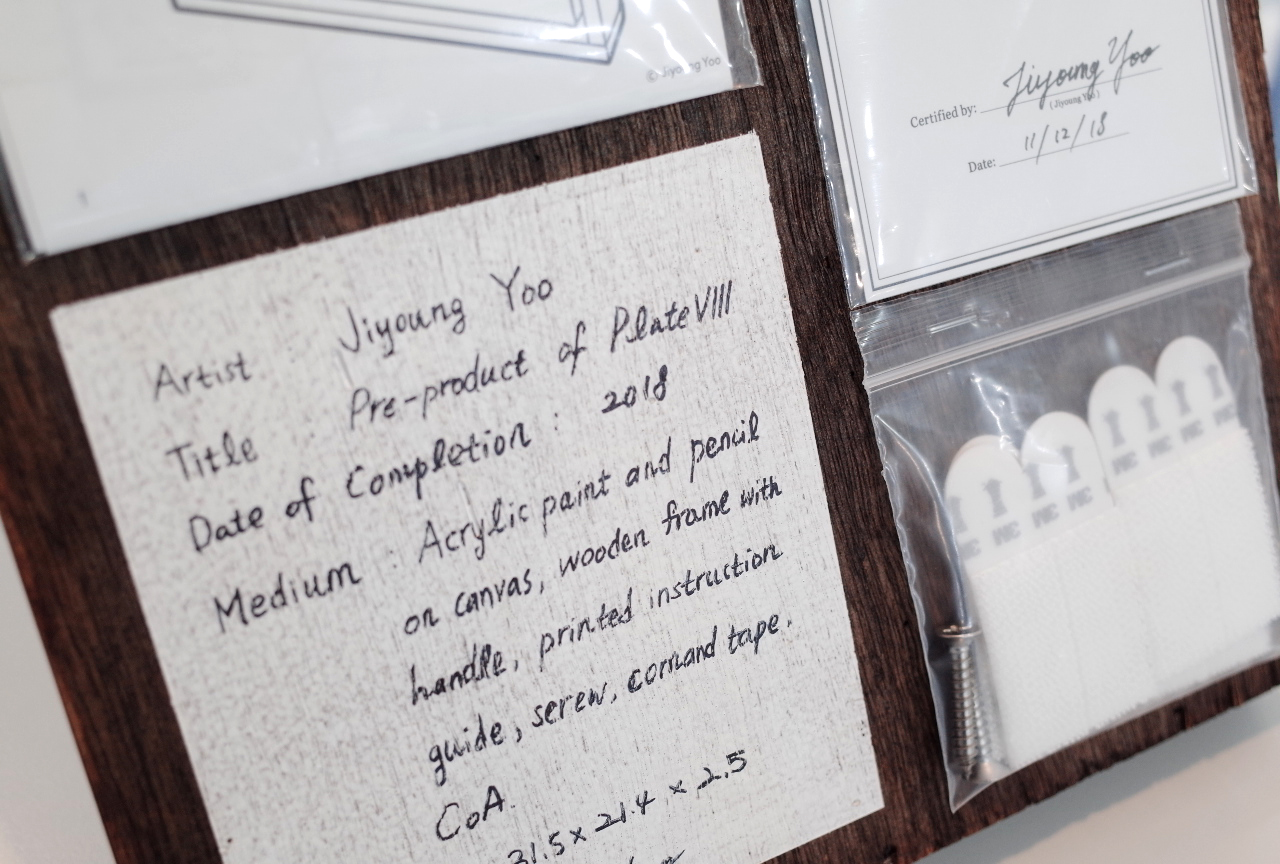 © Jiyoung Yoo
Certified by: Jiyoung Yoo
( Jiyoung Yoo )
Date: 11/12/18
Artist : Jiyoung Yoo
Title : Pre-product of Plate VIII
Date of Completion : 2018
Medium : Acrylic paint and pencil
on canvas, wooden frame with
handle, printed instruction
guide, screw, command tape.
CoA.
31.5 x 21.4 x 2.5